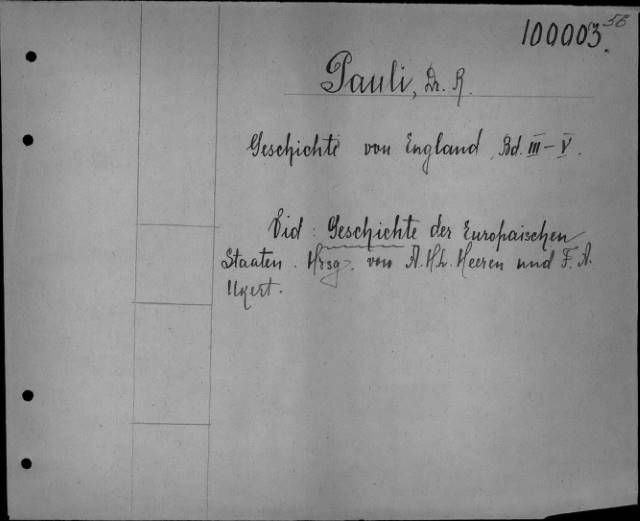 58
100003.
Pauli, Dr. R.
Geschichte von England, Bd. III - V.
Vid: Geschichte der Europaischen
Staaten. Hrsg. von A. H. L. Heeren und F. A.
Ukert.